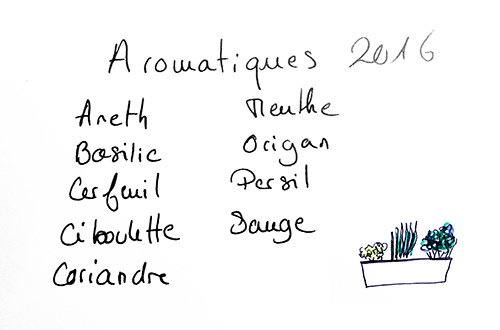 Aromatiques 2016
Aneth
Basilic
Cerfeuil
Ciboulette
Coriandre
Menthe
Origan
Persil
Sauge